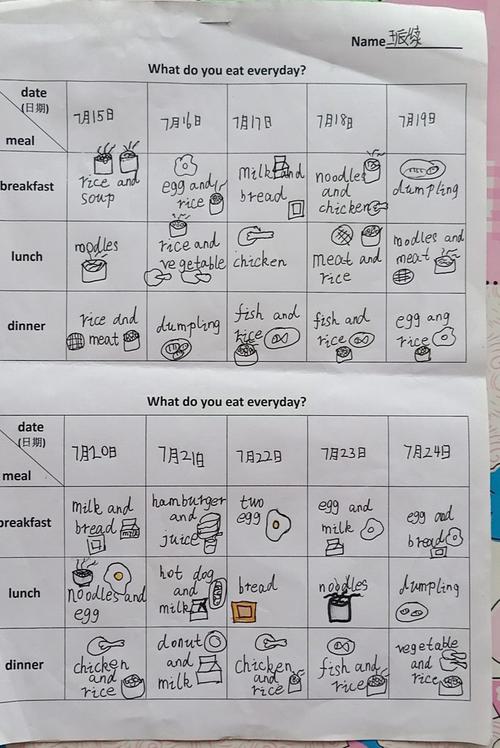 Name
What do you eat everyday?
date 7月15日 7月16日 7月17日 7月18日 7月19日
(日期)
meal
breakfast rice and soup egg and rice milk and bread noodles and chicken dumpling
lunch noodles rice and vegetable chicken meat and rice noodles and meat
dinner rice and meat dumpling fish and rice fish and rice egg ang rice
What do you eat everyday?
date 7月20日 7月21日 7月22日 7月23日 7月24日
(日期)
meal
breakfast milk and bread hamburger and juice two egg egg and milk egg and bread
lunch noodles and egg hot dog and milk bread noodles dumpling
dinner chicken and rice donut and milk chicken and rice fish and rice vegetable and rice